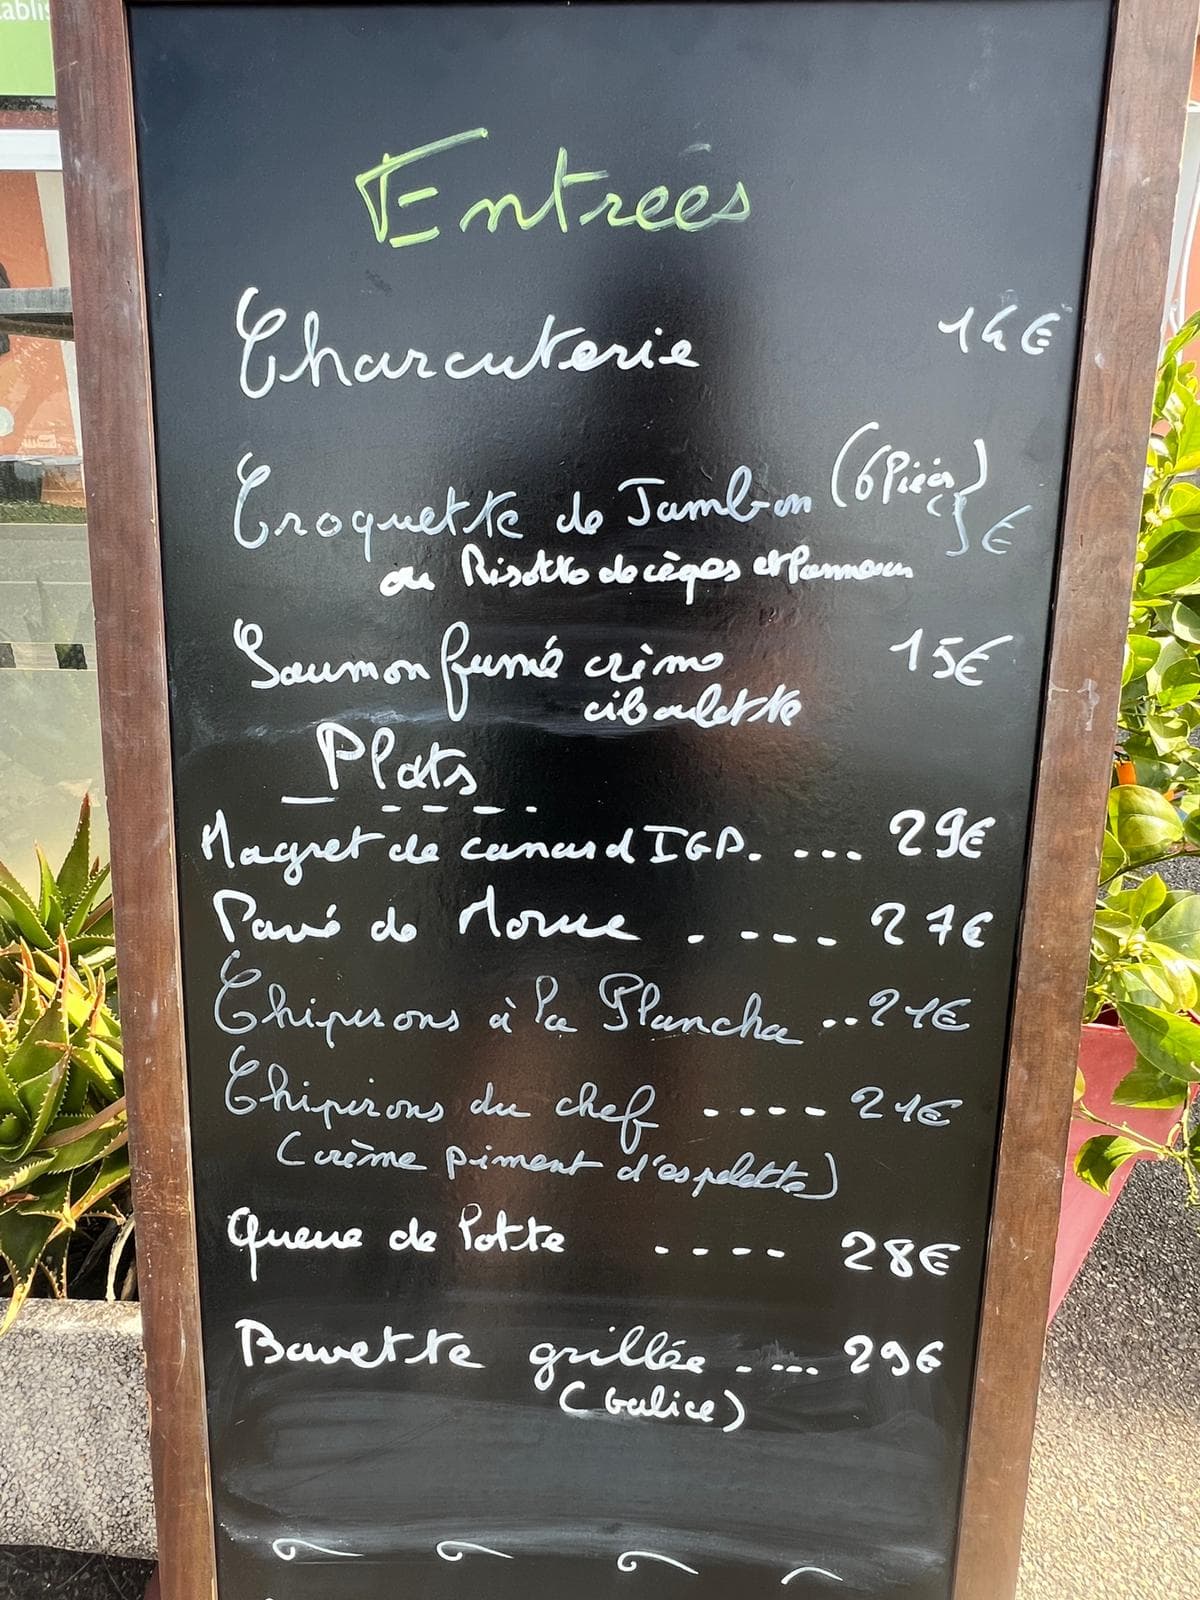 Entrées
Charcuterie 14€
Croquette de Jambon (6 Pièces) €
ou Risotto de cèpes et Parmesan
Saumon fumé crème 15€
ciboulette
Plats
Magret de canard IGP. .... 29€
Pavé de Morue ..... 27€
Chipirons à la Plancha .. 21€
Chipirons du chef .... 21€
(crème piment d'espelette)
Queue de Lotte .... 28€
Bavette grillée ..... 29€
(Galice)